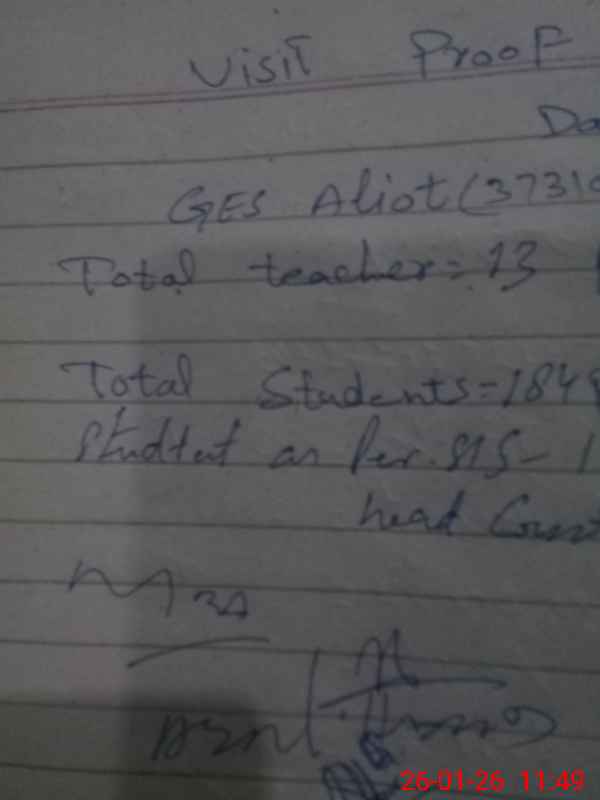 Visit Proof
Da
GES Aliot (3731
Total teacher = 13
Total Students = 184
Studtent as Per. SIS - 1
head Count
26-01-26 11:49